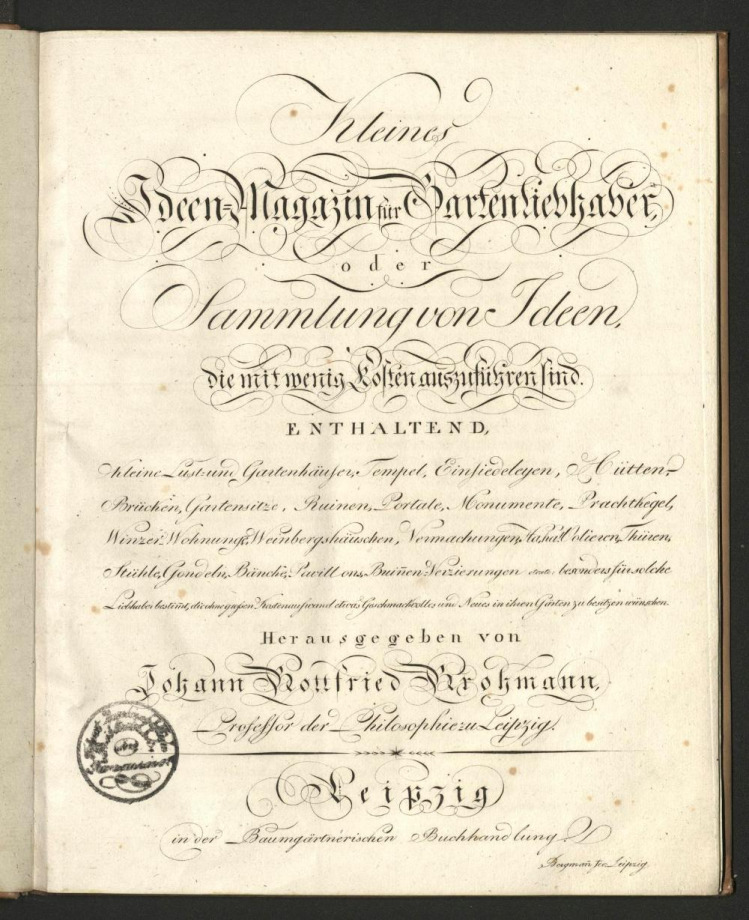 Kleines
Ideen-Magazin für Gartenliebhaber,
oder
Sammlung von Ideen,
die mit wenig Kosten auszuführen sind.
ENTHALTEND,
Kleine Lust- und Gartenhäuser, Tempel, Einsiedeleyen, Hütten,
Brücken, Gartensitze, Ruinen, Portale, Monumente, Prachtkegel,
Winzer Wohnung, Weinbergshäuschen, Vermachungen, Volieren, Thüren,
Stühle, Gondeln, Bänke, Pavillons, Bruñen-Verzierungen besonders für solche
Liebhaber bestimt, die ohne großen Kostenaufwand etwas Geschmackvolles und Neues in ihren Gärten zu besitzen wünschen.
Herausgegeben von
Johann Gottfried Grohmann,
Professor der Philosophie zu Leipzig.
Leipzig
in der Baumgärtnerischen Buchhandlung
Bergmañ sc. Leipzig